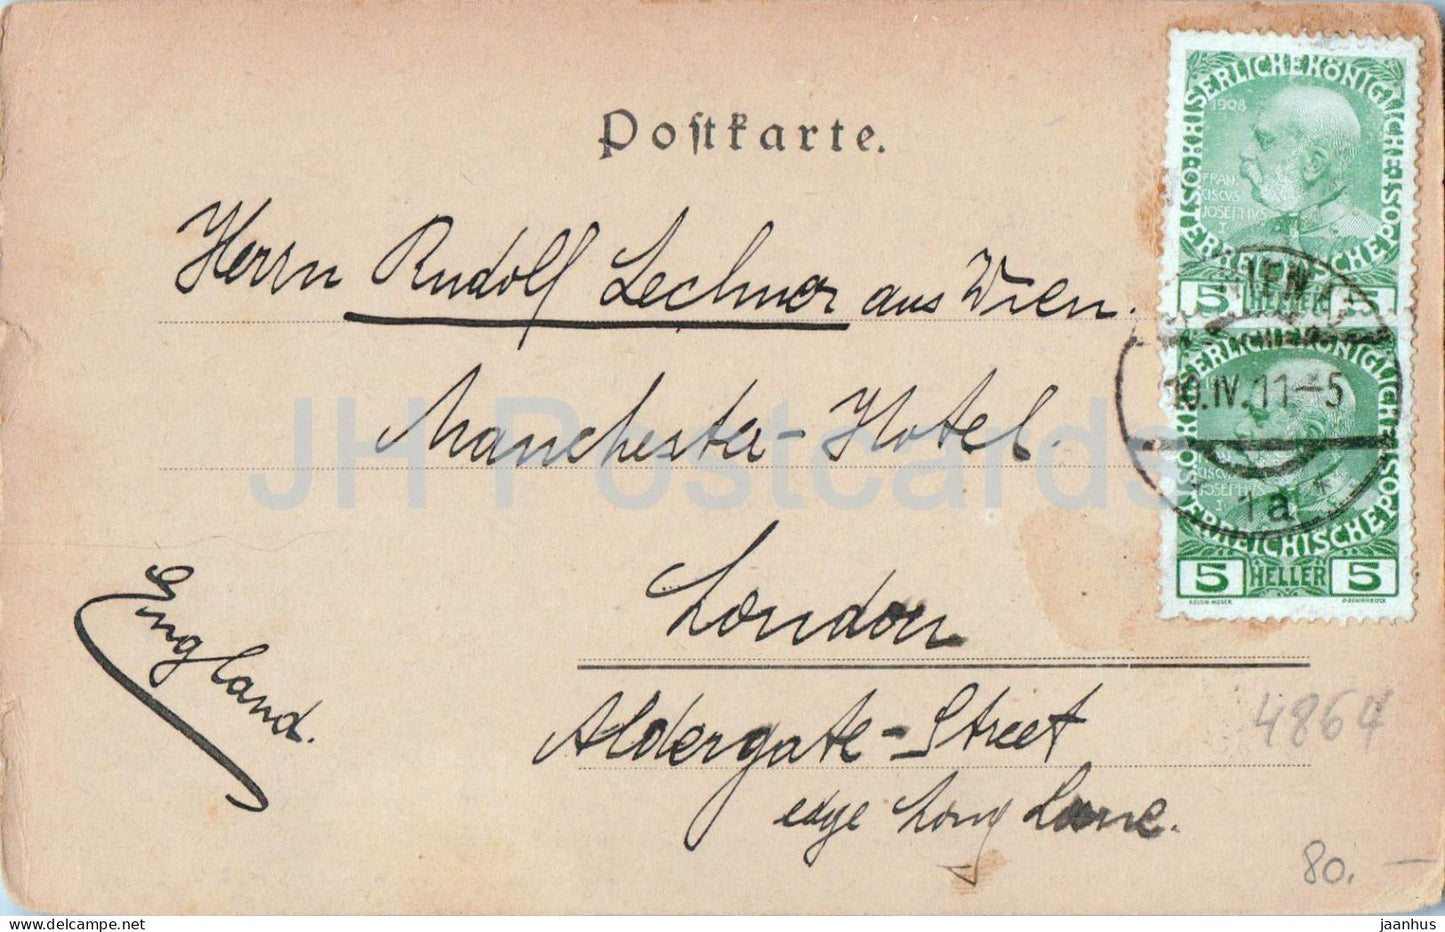 Postkarte.
Herrn Rudolf Lechner aus Wien.
Manchester-Hotel.
London
Aldergate-Street
edge Long Lane.
England.
KAISERLICHE KÖNIGLICHE ÖSTERREICHISCHE POST
1908
FRANCISCVS JOSEPHVS I
5 HELLER 5
KAISERLICHE KÖNIGLICHE ÖSTERREICHISCHE POST
5 HELLER 5
WIEN
10.IV.11-5
* 1a *
4864
80.—
JH Postcards
jaanhus